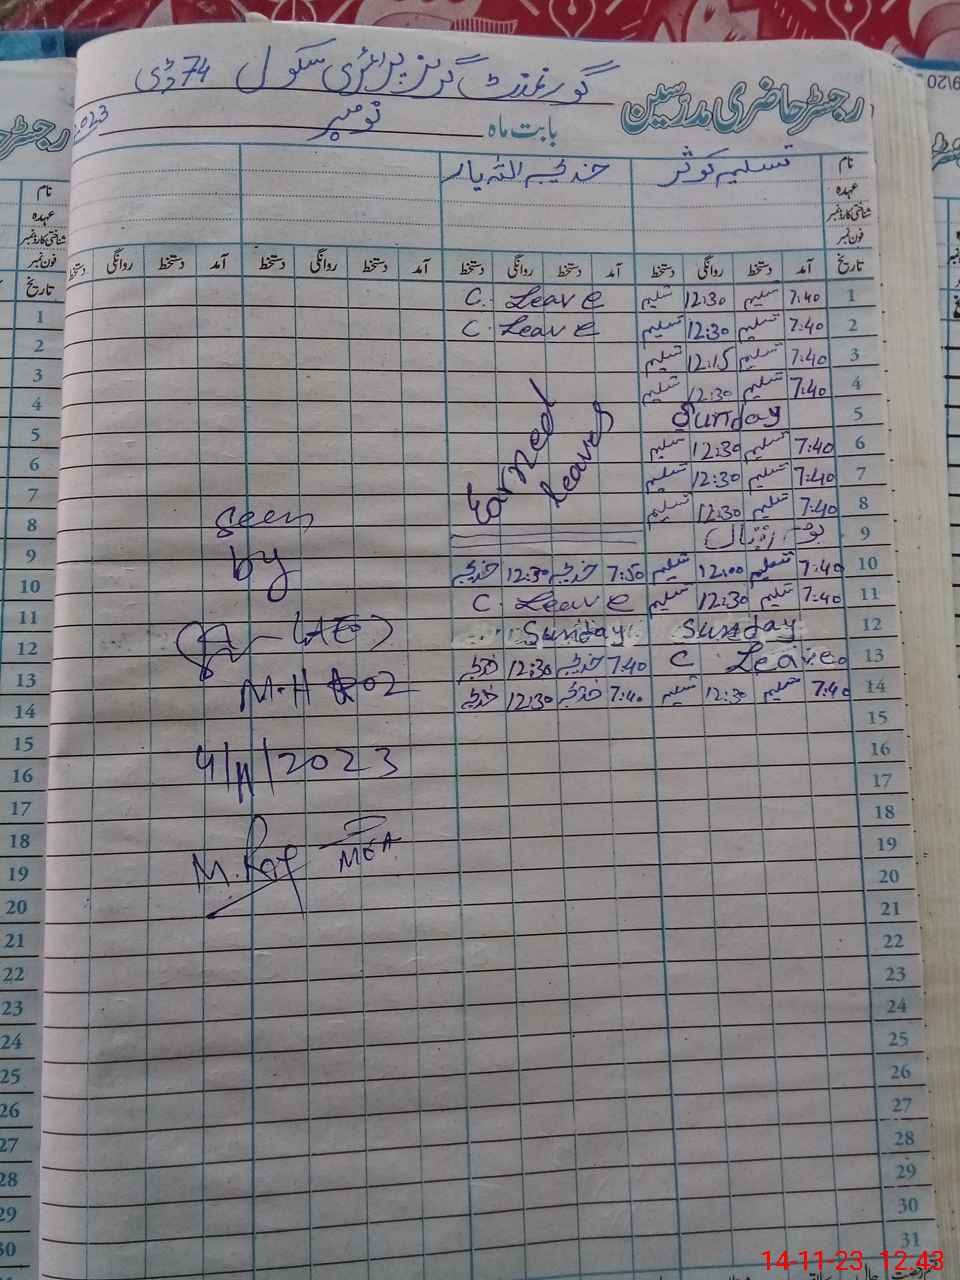 گورنمنٹ گرلز پرائمری سکول 74 ڈی
رجسٹر حاضری مدرسین
بابت ماہ نومبر 2023
نام تسلیم کوثر خدیجہ اللہ یار
عہدہ
شناختی کارڈ نمبر
فون نمبر
تاریخ آمد دستخط روانگی دستخط آمد دستخط روانگی دستخط آمد دستخط روانگی دستخط آمد دستخط روانگی دستخط
1 7:40 تسلیم 12:30 تسلیم C. Leave
2 7:40 تسلیم 12:30 تسلیم C. Leave
3 7:40 تسلیم 12:15 تسلیم
4 7:40 تسلیم 12:30 تسلیم
5 Sunday
Earned
leaves
6 7:40 تسلیم 12:30 تسلیم
7 7:40 تسلیم 12:30 تسلیم
8 7:40 تسلیم 12:30 تسلیم
9
10 7:40 تسلیم 12:00 تسلیم 7:50 خدیجہ 12:30 خدیجہ
11 7:40 تسلیم 12:30 تسلیم C. Leave
12 Sunday Sunday
13 C Leave 7:40 خدیجہ 12:30 خدیجہ
14 7:40 تسلیم 12:30 تسلیم 7:40 خدیجہ 12:30 خدیجہ
15
16
17
18
19
20
21
22
23
24
25
26
27
28
29
30
31
seen
by
(AEO)
4/11/2023
MEA
نام
عہدہ
شناختی کارڈ نمبر
فون نمبر
تاریخ
1
2
3
4
5
6
7
8
9
10
11
12
13
14
15
16
17
18
19
20
21
22
23
24
25
26
27
28
29
30
14-11-23 12.43